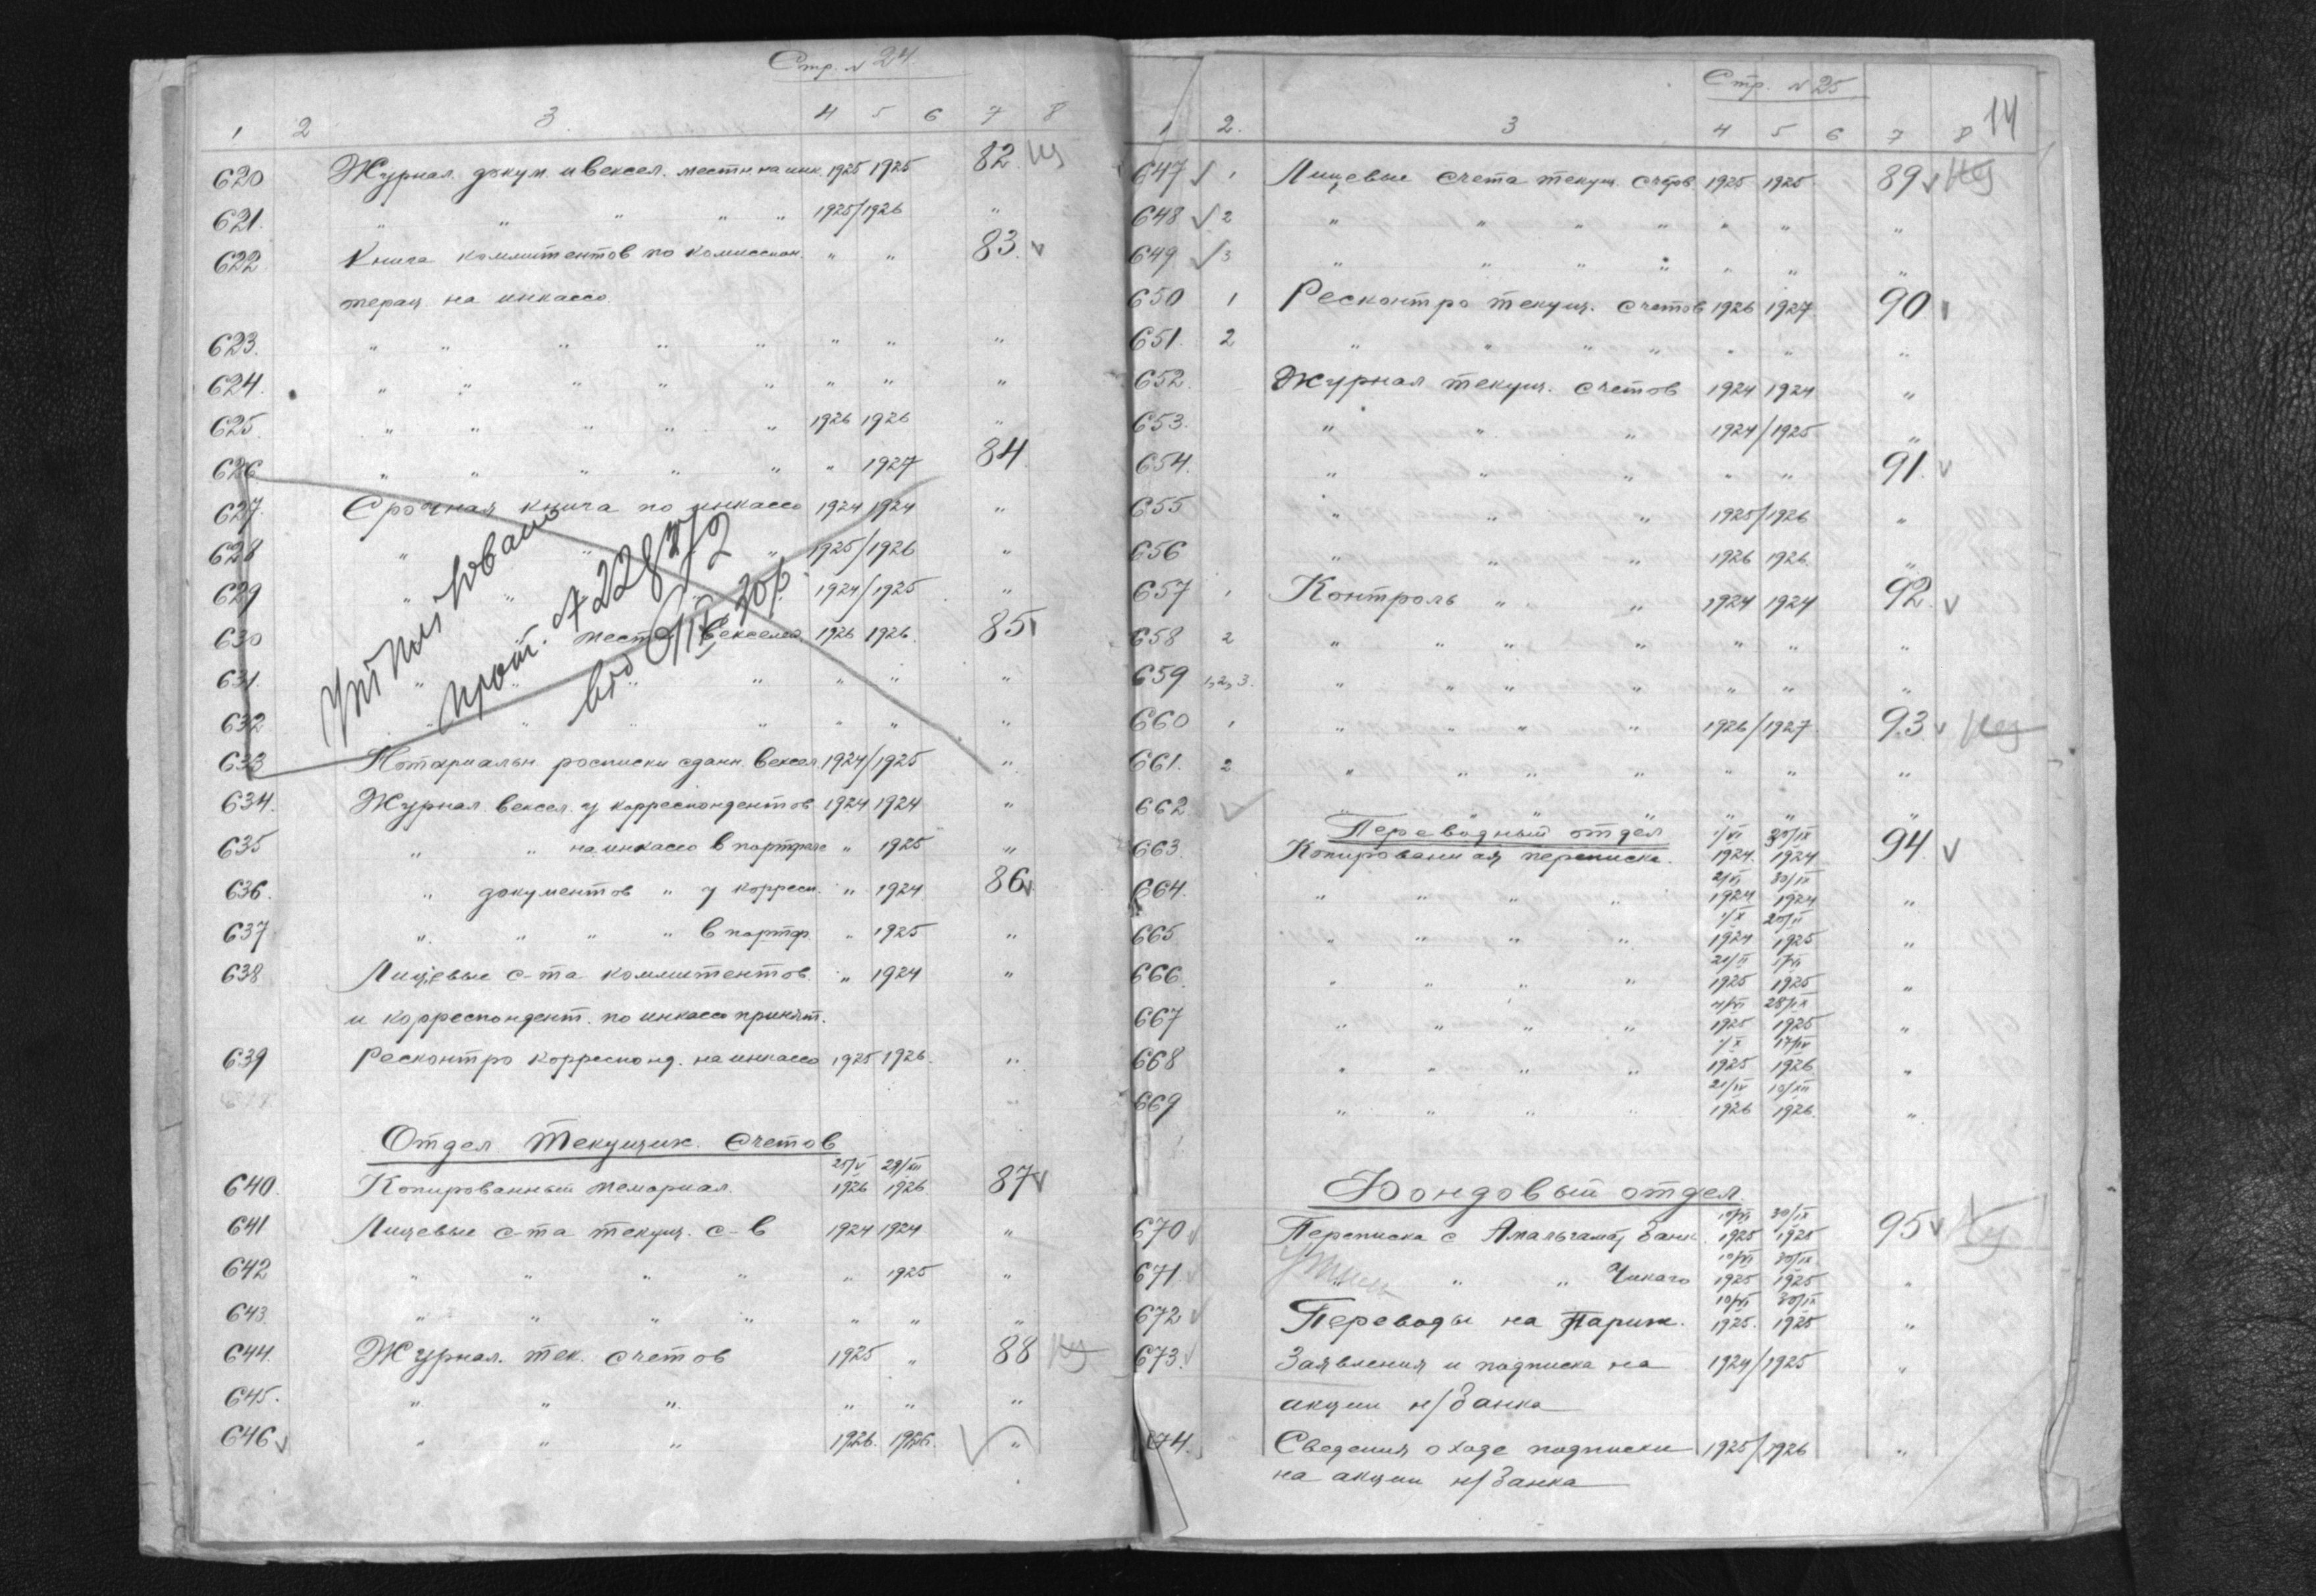 Стр. № 24
1 2 3 4 5 6 7 8
620 Журнал докум. и вексел. местн. на инк. 1925 1925 82
621. " " " " " 1925/1926 "
622 Книга коммитентов по комиссион. " " 83. v
операц. на инкассо.
623. " " " " " " " "
624. " " " " " " " "
625. " " " " " 1926 1926 "
626. " " " " " " 1927 84
627. Срочная книга по инкассо 1924 1924 "
628 " " " 1925/1926 "
629 " " " 1924/1925 "
630 " " мест. векселей 1926 1926. 85
631. " " " " " " "
632 " " " " " " "
633 Нотариальн. росписки сданн. вексел. 1924/1925 "
634. Журнал вексел. у корреспондентов 1924 1924 "
635 " " на инкассо в портфеле " 1925 "
636. " документов " у корресп. " 1924 86 v
637 " " " " в портф. " 1925 "
638 Лицевые с-та коммитентов " 1924 "
и корреспондент. по инкассо принят.
639 Ресконтро корреспонд. на инкассо 1925 1926. "
Отдел Текущих. Счетов
25/V 29/XII
640. Копированный мемориал. 1926 1926 87 v
641 Лицевые с-та текущ. с-в 1924 1924 "
642 " " " " " 1925 "
643. " " " " " " "
644. Журнал. тек. счетов 1925 " 88
645. " " " " " "
646 v " " " 1926. 1926. "
прот.
Стр. № 25
14
1 2. 3 4 5 6 7 8
647 v 1 Лицевые счета текущ. счетов 1925 1925 89 v
648 v 2 " " " " " " "
649 v 3 " " " " " " "
650 1 Ресконтро текущ. счетов 1926 1927 90
651. 2 " " " " " " "
652. Журнал текущ. счетов 1924 1924 "
653. " " " 1924/1925 "
654. " " " " " 91. v
655 " " " 1925/1926 "
656 " " " 1926 1926. "
657 1 Контроль " " 1924 1924 92. v
658 2 " " " " " " "
659 1, 2, 3. " " " " " " "
660 1 " " " " 1926/1927 93. v
661. 2 " " " " " " "
662 v " " " " " "
Переводный отдел 1/VI 30/IX
663. Копированная переписка. 1924. 1924 94. v
21/VI 30/IX
664. " " " " 1924 1924 "
1/X 20/II
665 " " " " 1924 1925 "
666. " " " " 1925 1925 "
667 " " " " 1925 1925 "
668 " " " " 1925 1926 "
669 " " " " 1926 1926. "
Фондовый отдел
10/VI 30/IX
670 v Переписка с Амальгамат. Банк 1925 1925 95 v
10/VI 30/IX
671 v " " " Чикаго 1925 1925 "
10/VI 30/IX
672 v Переводы на Париж. 1925. 1925 "
673. v Заявления и подписка на 1924/1925 "
акции н/Банка
674. Сведения о ходе подписки 1925/1926 "
на акции н/Банка